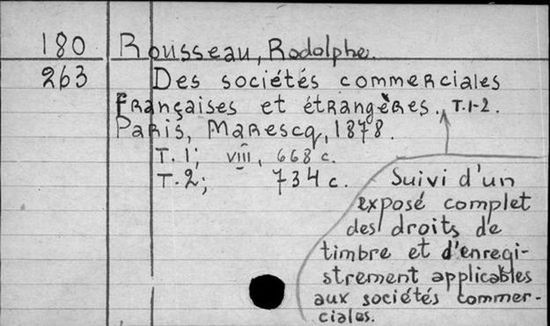 180 Rousseau, Rodolphe.
263 Des sociétés commerciales
françaises et étrangères. T.1-2.
Paris, Marescq, 1878.
T. 1; VIII, 668 c.
T. 2; 734 c.
Suivi d'un
exposé complet
des droits de
timbre et d'enregi-
strement applicables
aux sociétés commer-
ciales.